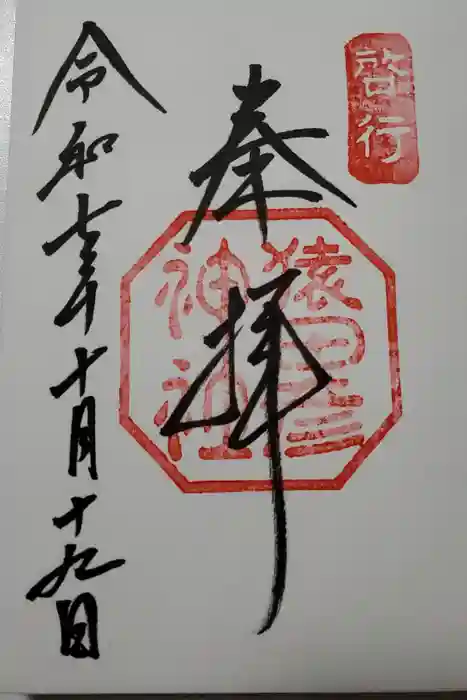 啓行
奉拝
猿田彦
神社
令和七年十月十九日